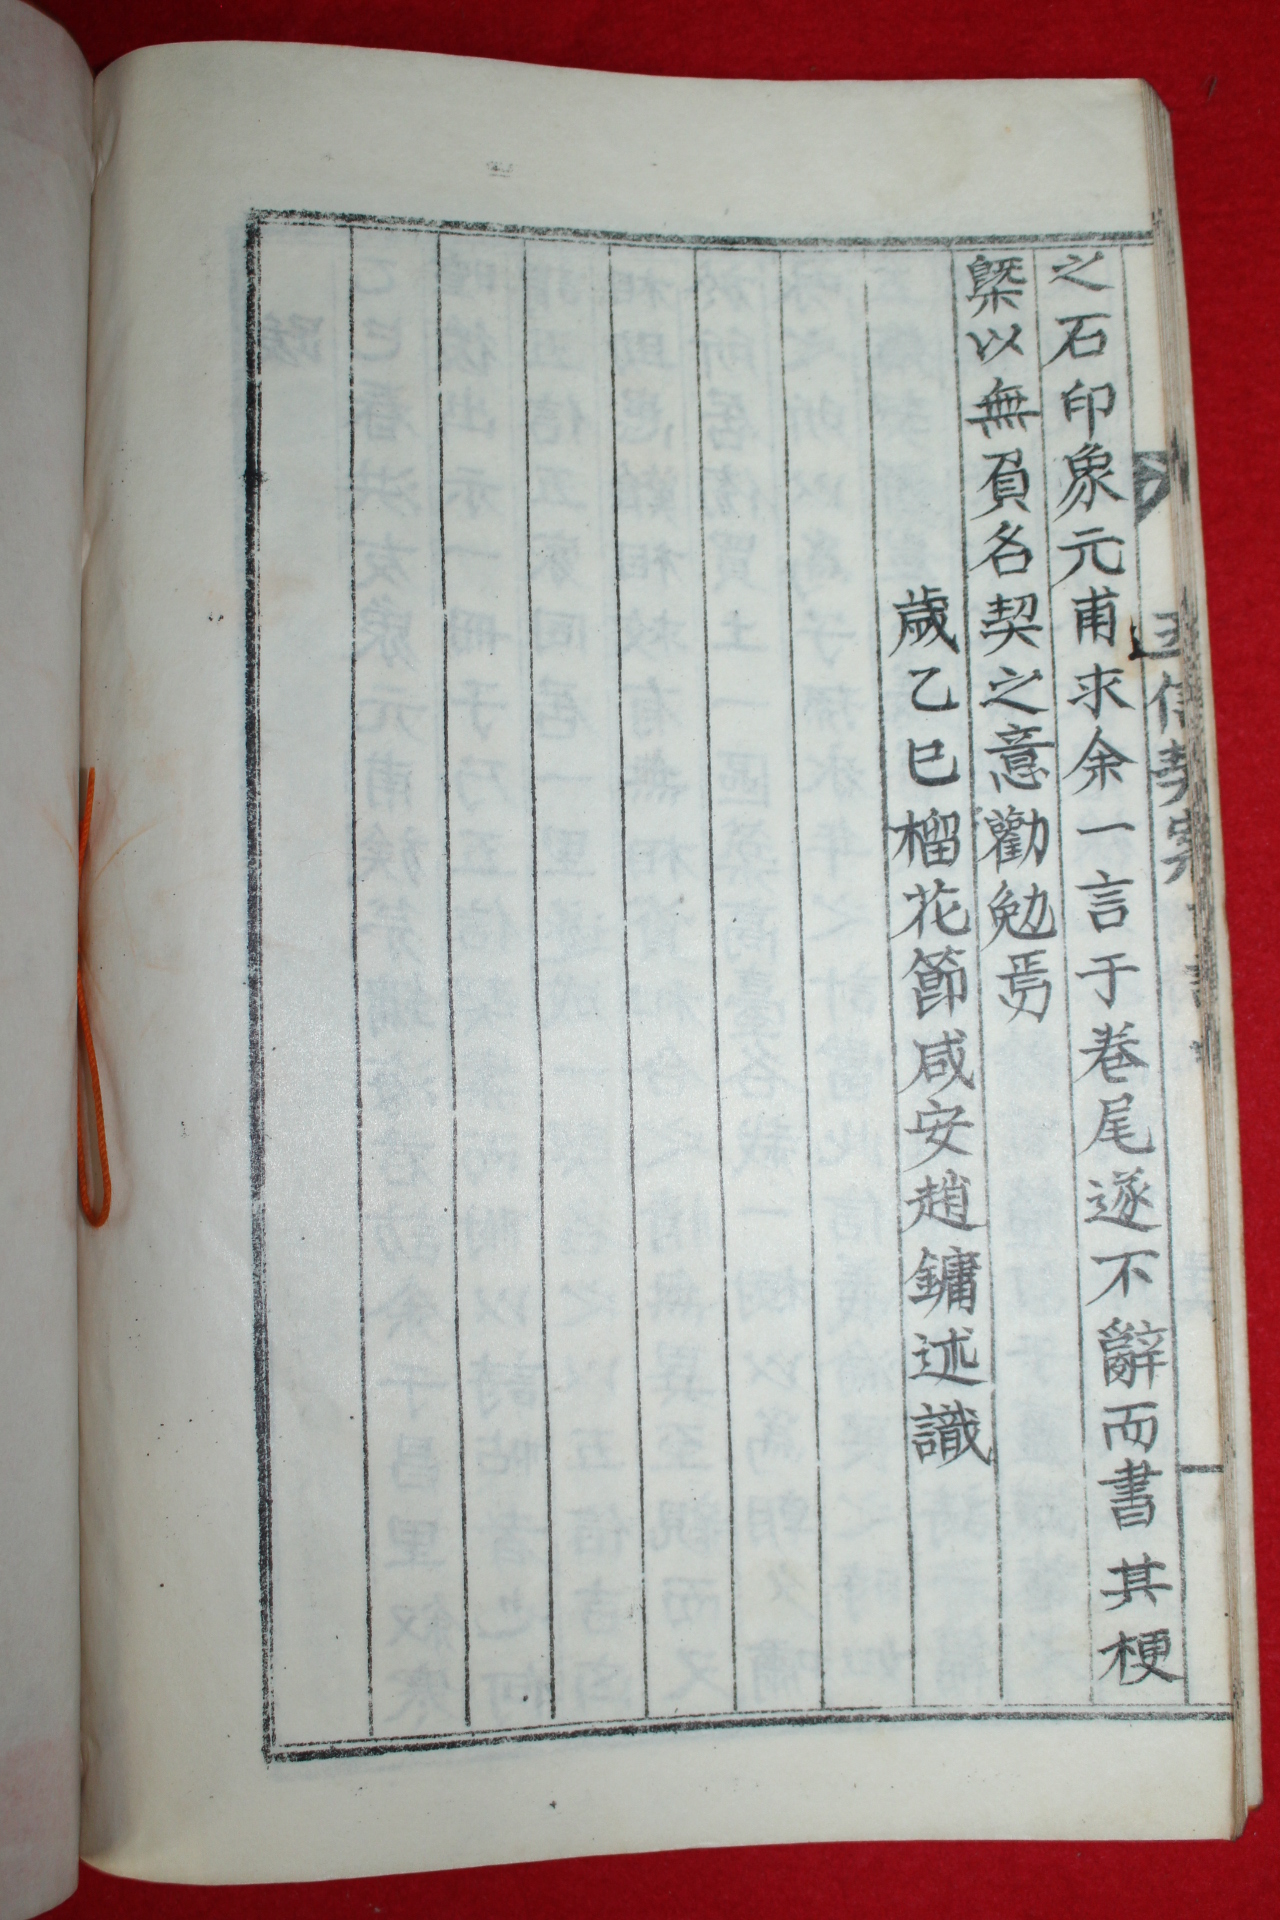 之石印象元甫求余一言于卷尾遂不辭而書其梗
槩以無負名契之意勸勉焉
歲乙巳榴花節咸安趙鏞述識